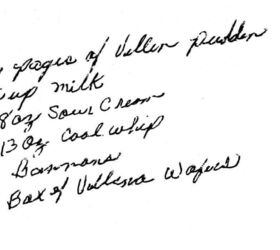 pages of Vullen Pudden
up milk
8 oz Sour Cream
13 oz Cool whip
Bannans
Box of Vullena Wafers